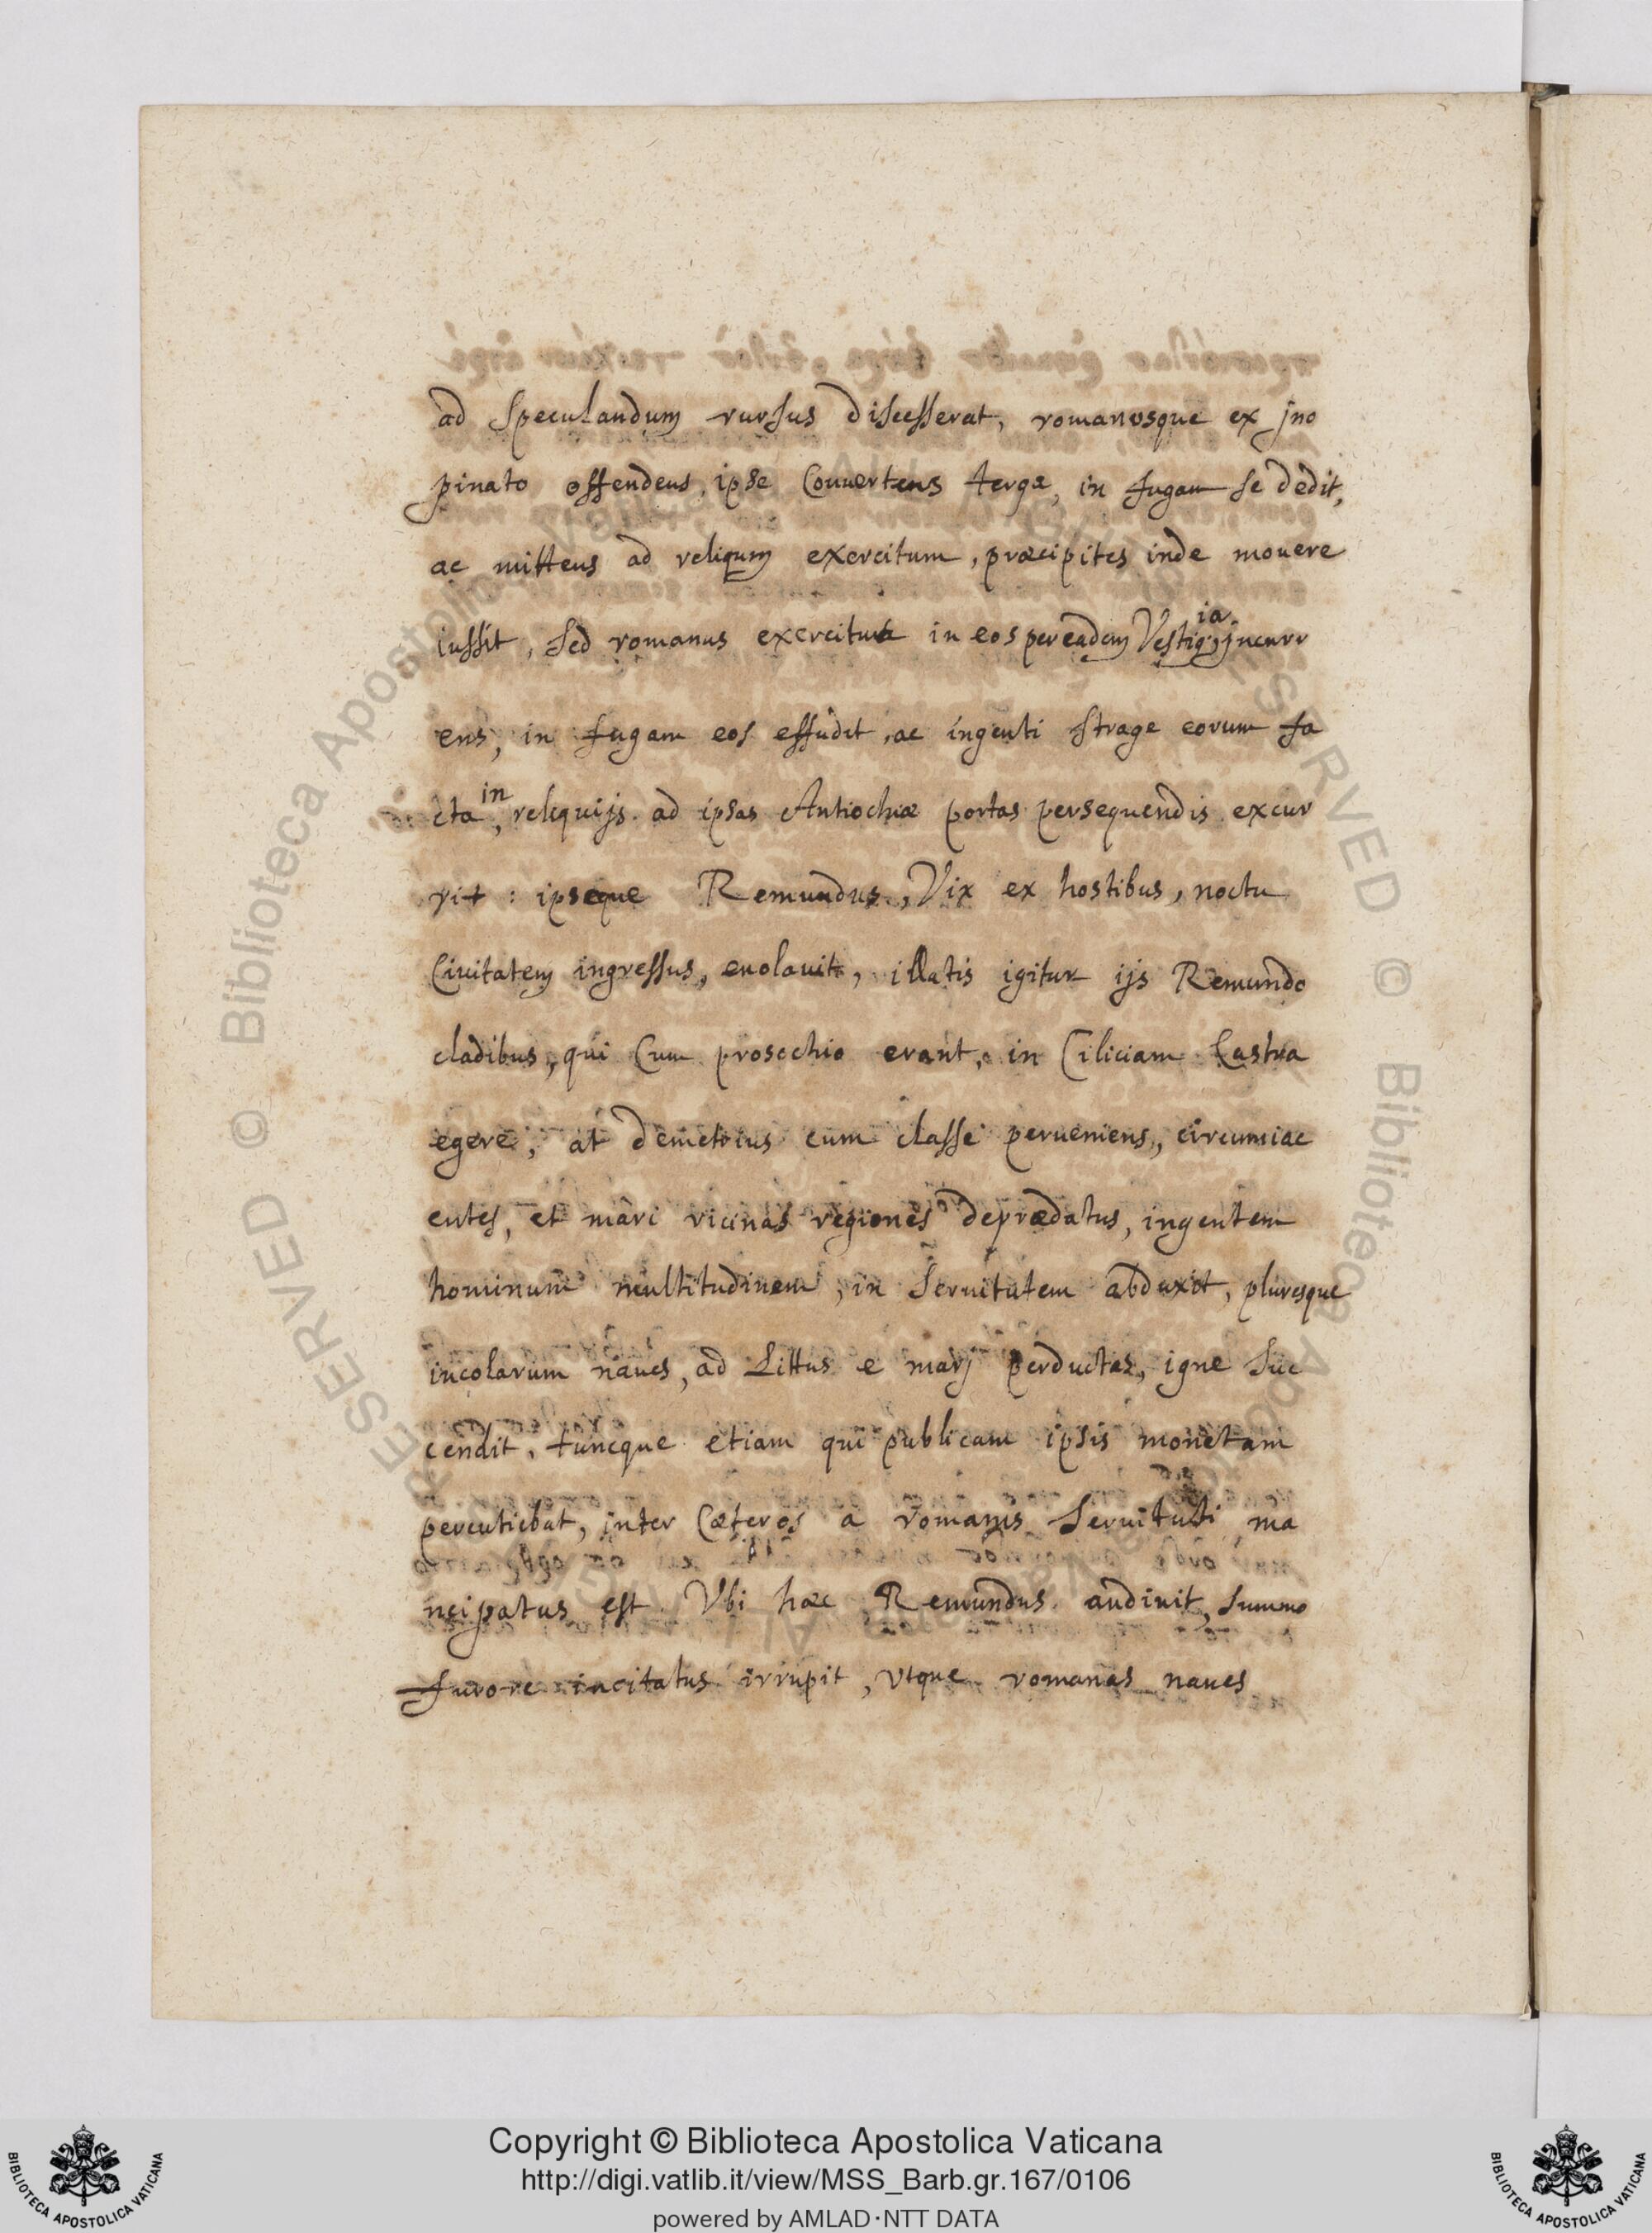 ad speculandum rursus discesserat, romanosque ex jno
pinato offendens, ipse Conuertens terga, in fugam se dedit,
ac mittens ad reliqum exercitum, præcipites inde mouere
iussit, sed romanus exercitus in eos per eadem Vestigia, jncurr
ens, in fugam eos effudit, ac ingenti strage eorum fa
cta, in reliquijs ad ipsas Antiochiæ portas persequendis excur
rit : ipseque Remundus, Vix ex hostibus, noctu
Ciuitatem ingressus, euolauit, illatis igitur ijs Remundo
cladibus, qui Cum prosochio erant, in Ciliciam Castra
egere, at demetrius cum classe perueniens, circumiac
entes, et mari vicinas regiones deprædatus, ingentem
hominum multitudinem, in seruitutem abduxit, pluresque
incolarum naues, ad Littus e marj perductas, igne suc
cendit, tuncque etiam qui publicam ipsis monetam
percutiebat, inter Cæteros a romanis seruituti ma
ncipatus est. Vbi hæc Remundus audiuit, summo
furore incitatus irrupit, vtque romanas naues
Copyright © Biblioteca Apostolica Vaticana
http://digi.vatlib.it/view/MSS_Barb.gr.167/0106
powered by AMLAD·NTT DATA
BIBLIOTECA APOSTOLICA VATICANA
BIBLIOTECA APOSTOLICA VATICANA